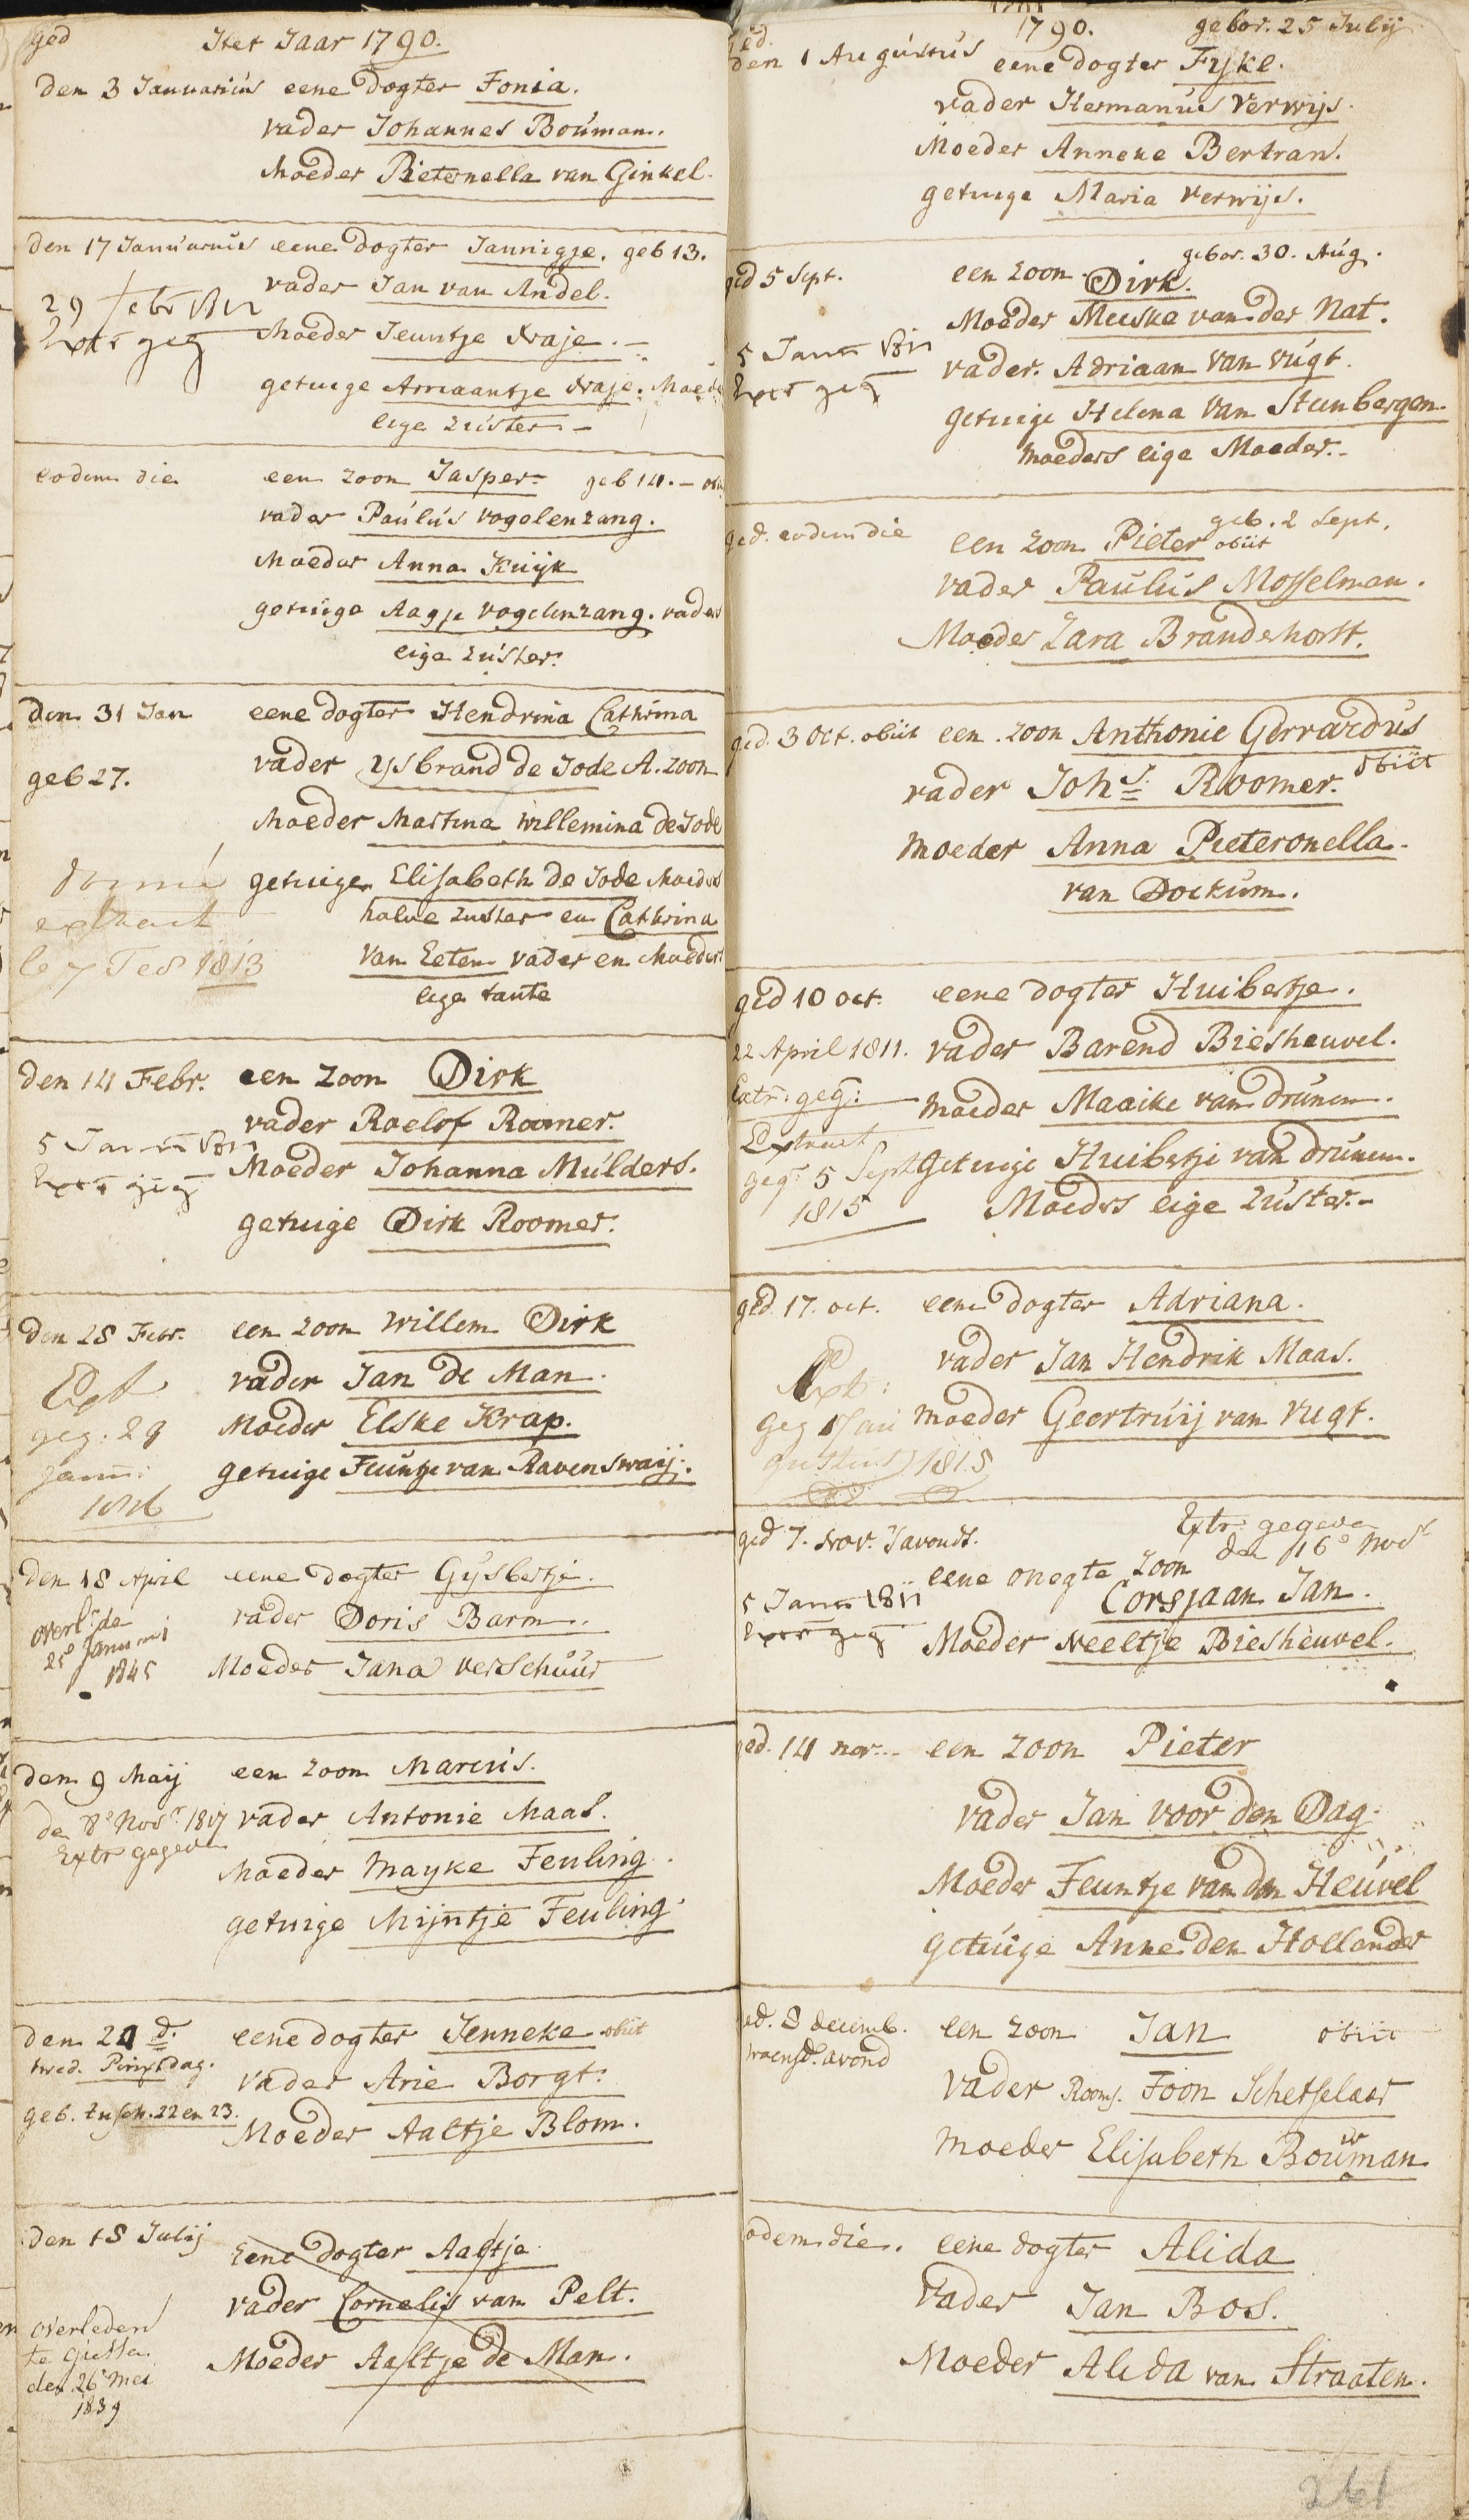 ged Het Jaar 1790.
den 3 Januariús eene dogter Fonia.
vader Johannes Boúman.
Moeder Pieternella van Ginkel.
den 17 Januarius eene dogter Jannigje. geb 13.
vader Jan van Andel.
29 febr 1811
Extr geg
Moeder Teuntje Kraje.
getuige Ariaantje Kraje. Moeder
eige Zúster
eodem die een zoon Jasper geb 14. obiit
vader Paulús Vogelenzang.
Moeder Anna Kuijk
getuige Aagje Vogelenzang. vader
eige zúster.
den 31 Jan eene dogter Hendrina Cathrina
geb 27.
vader Ysbrand de Jode A. zoon
Moeder Martina Willemina de Jode
donné
extrait
le 7 Feb 1813
getuigen Elisabeth de Jode Moeders
halve zuster en Cathrina
Van Eeten vader en Moeders
eige tante
den 14 Febr. een zoon Dirk
vader Roelof Roomer.
5 Jan 1811
Extr geg
Moeder Johanna Múlders.
getuige Dirk Roomer.
den 28 Febr. een zoon Willem Dirk
vader Jan de Man.
Ext
geg. 29
Janu:
1816
Moeder Elske Krap.
getuige Teuntje van Ravenswaij.
den 18 April eene dogter Gijsbertje.
vader Doris Barm
overl: de
25e Januari
1845
Moeder Jana Verschúúr
den 9 Maij een zoon Marcús.
de 8e Novr 1817
Extr gegeven
vader Antonie Maas.
Moeder Mayke Feuling.
getuige Mijntje Feuling.
den 24 d. eene dogter Jenneke obiit
twed. Pinxtdag.
vader Arie Borgt.
geb. tusch. 22 en 23.
Moeder Aaltje Blom.
den 18 Julij eene dogter Aaltje
vader Cornelis van Pelt.
Moeder Aaltje de Man.
overleden
te Giessen
den 26 Mei
1839
ged. 1790. gebor. 25 Julij
den 1 Augústús eene dogter Fyke.
vader Hermanus Verwijs.
Moeder Anneke Bertran.
getuige Maria Verwijs.
gebor. 30. Aúg.
ged 5 Sept. een zoon Dirk.
Moeder Meeske van der Nat.
5 Jan 1811
Extr geg
vader. Adriaan van Vúgt.
getuige Helena van Steenbergen.
moeders eige Moeder.
geb. 2 Sept.
ged. eodem die een zoon Pieter obiit
vader Paulús Mosselman.
Moeder Zara Brandshorst.
ged. 3 Oct. obiit een zoon Anthonie Gerrardús
obiit
vader Johs. Roomer.
Moeder Anna Pieteronella
van Dockum.
ged 10 oct. eene dogter Huibertje.
22 April 1811.
Extr. geg:
vader Barend Biesheuvel.
moeder Maaike van Drúnen.
Extract
geg 5 Sept
1815
getuige Huibertje van Drúnen.
Moeders eige Zúster.
ged. 17. oct. eene dogter Adriana.
vader Jan Hendrik Maas.
Ext:
geg
1815
moeder Geertrúij van Vugt.
ged 7. Nov. 'savonds.
Extr gegeven
den 16e Novr
eene onegte Zoon
Corsjaan Jan.
5 Jan 1811
Extr geg
Moeder Neeltje Biesheuvel.
ged. 14 nov. een zoon Pieter
vader Jan voor den Dag.
Moeder Teuntje van den Heúvel
getúige Anne den Hollander
ged. 8 decemb. een zoon Jan obiit
woensd. avond
vader Rooms. Toon Schetselaar
moeder Elisabeth Boúman
eodem die. eene dogter Alida
Vader Jan Bos.
Moeder Alida van Straaten.
261